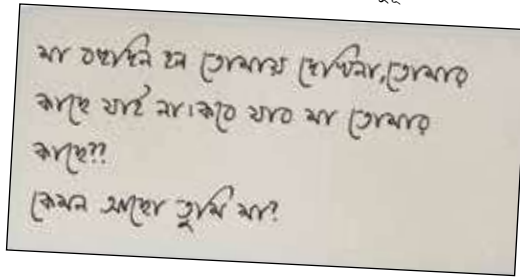 মা বহুদিন হল তোমায় দেখিনা,তোমার
কাছে যাই না।কবে যাব মা তোমার
কাছে??
কেমন আছো তুমি মা?